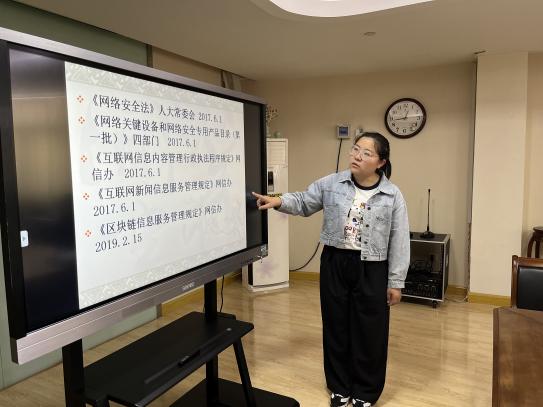 《网络安全法》人大常委会 2017.6.1
《网络关键设备和网络安全专用产品目录（第
一批）》四部门 2017.6.1
《互联网信息内容管理行政执法程序规定》网
信办 2017.6.1
《互联网新闻信息服务管理规定》网信办
2017.6.1
《区块链信息服务管理规定》网信办
2019.2.15